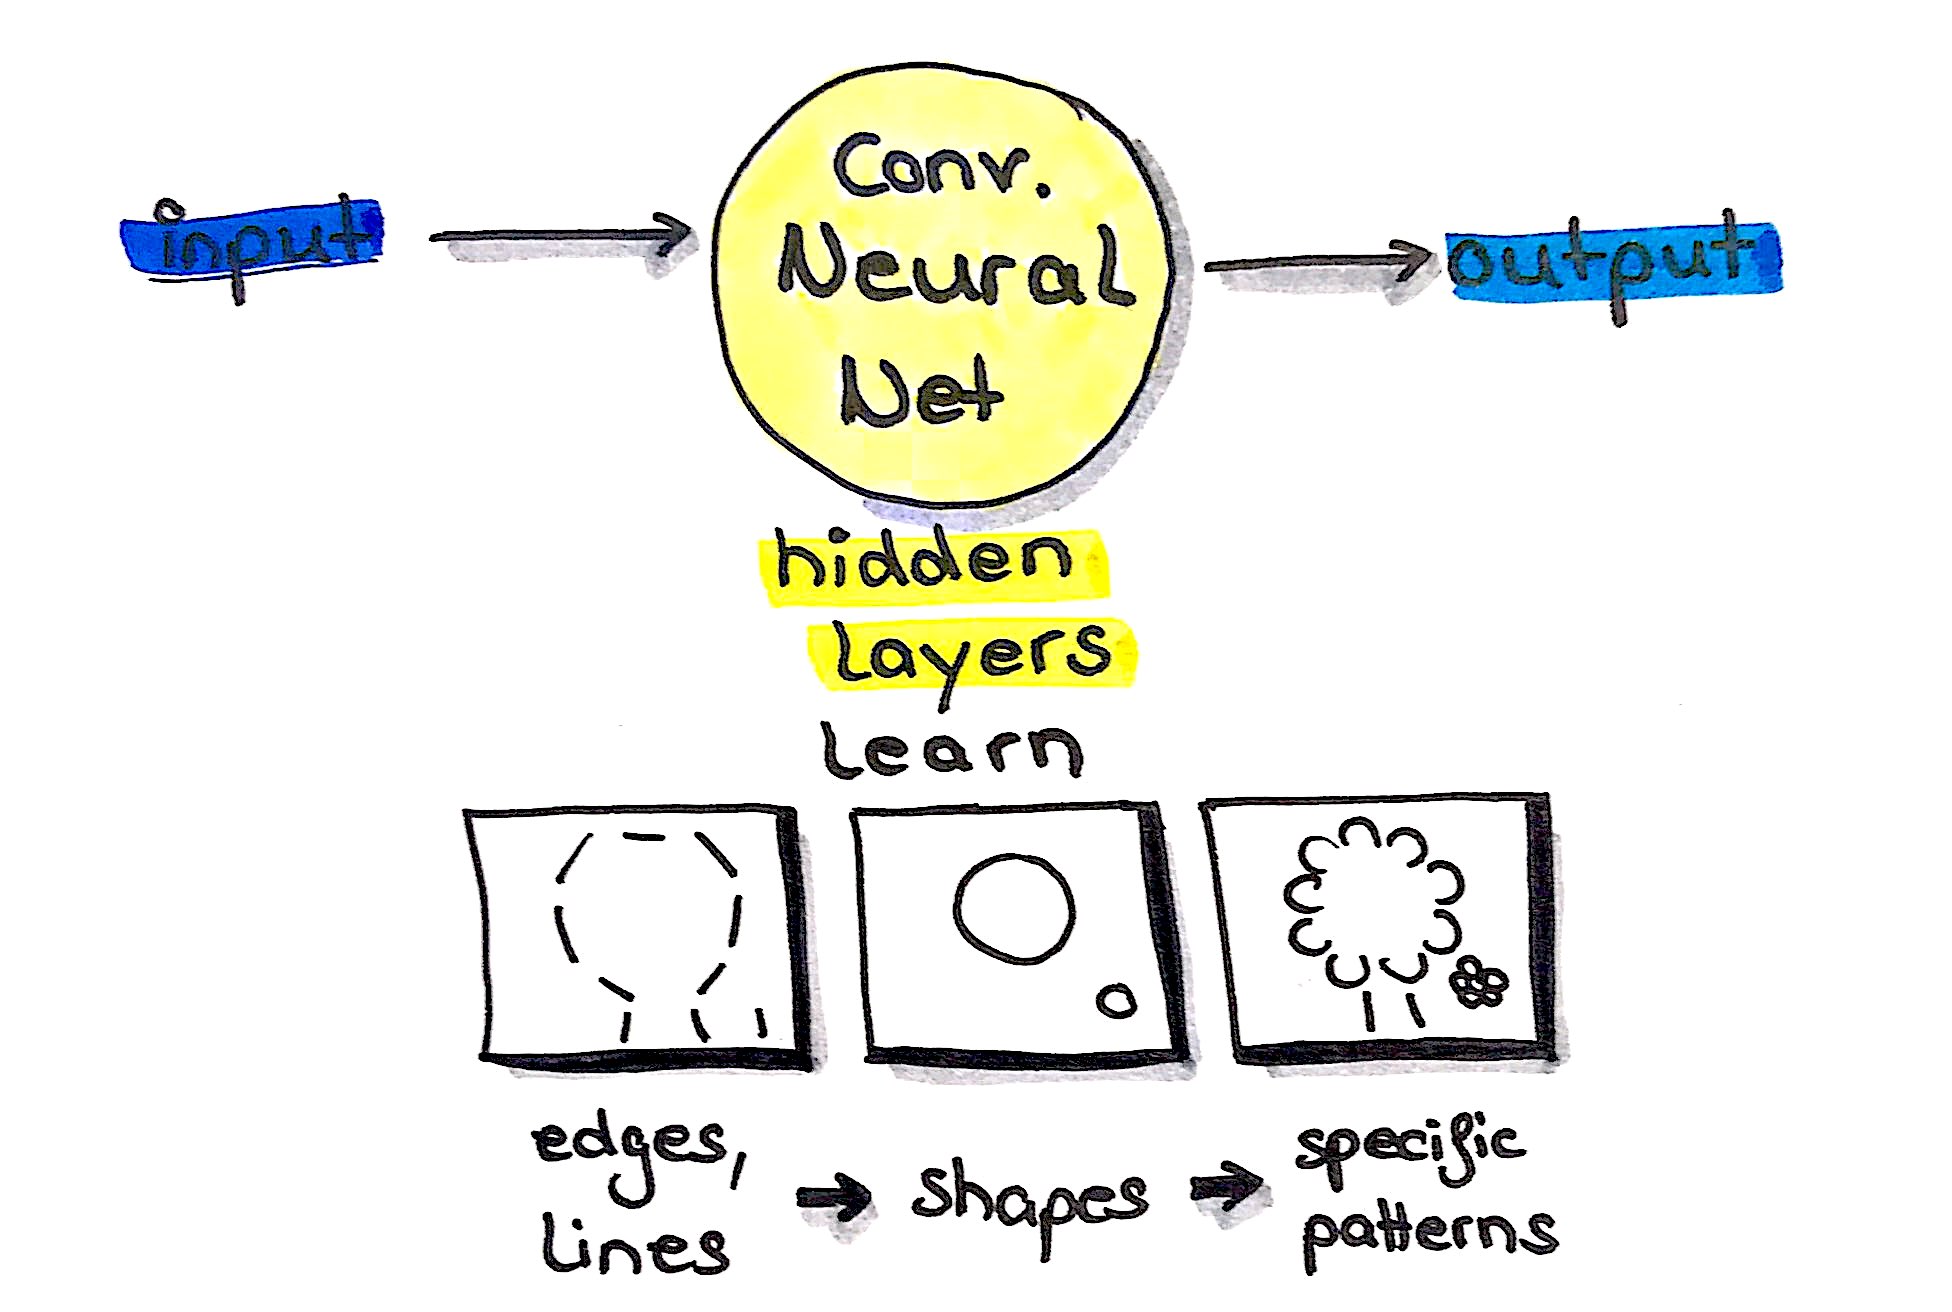 input
Conv.
Neural
Net
output
hidden
layers
learn
edges,
lines
shapes
specific
patterns